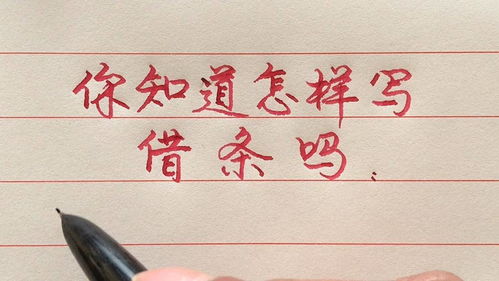 你知道怎样写
借条吗